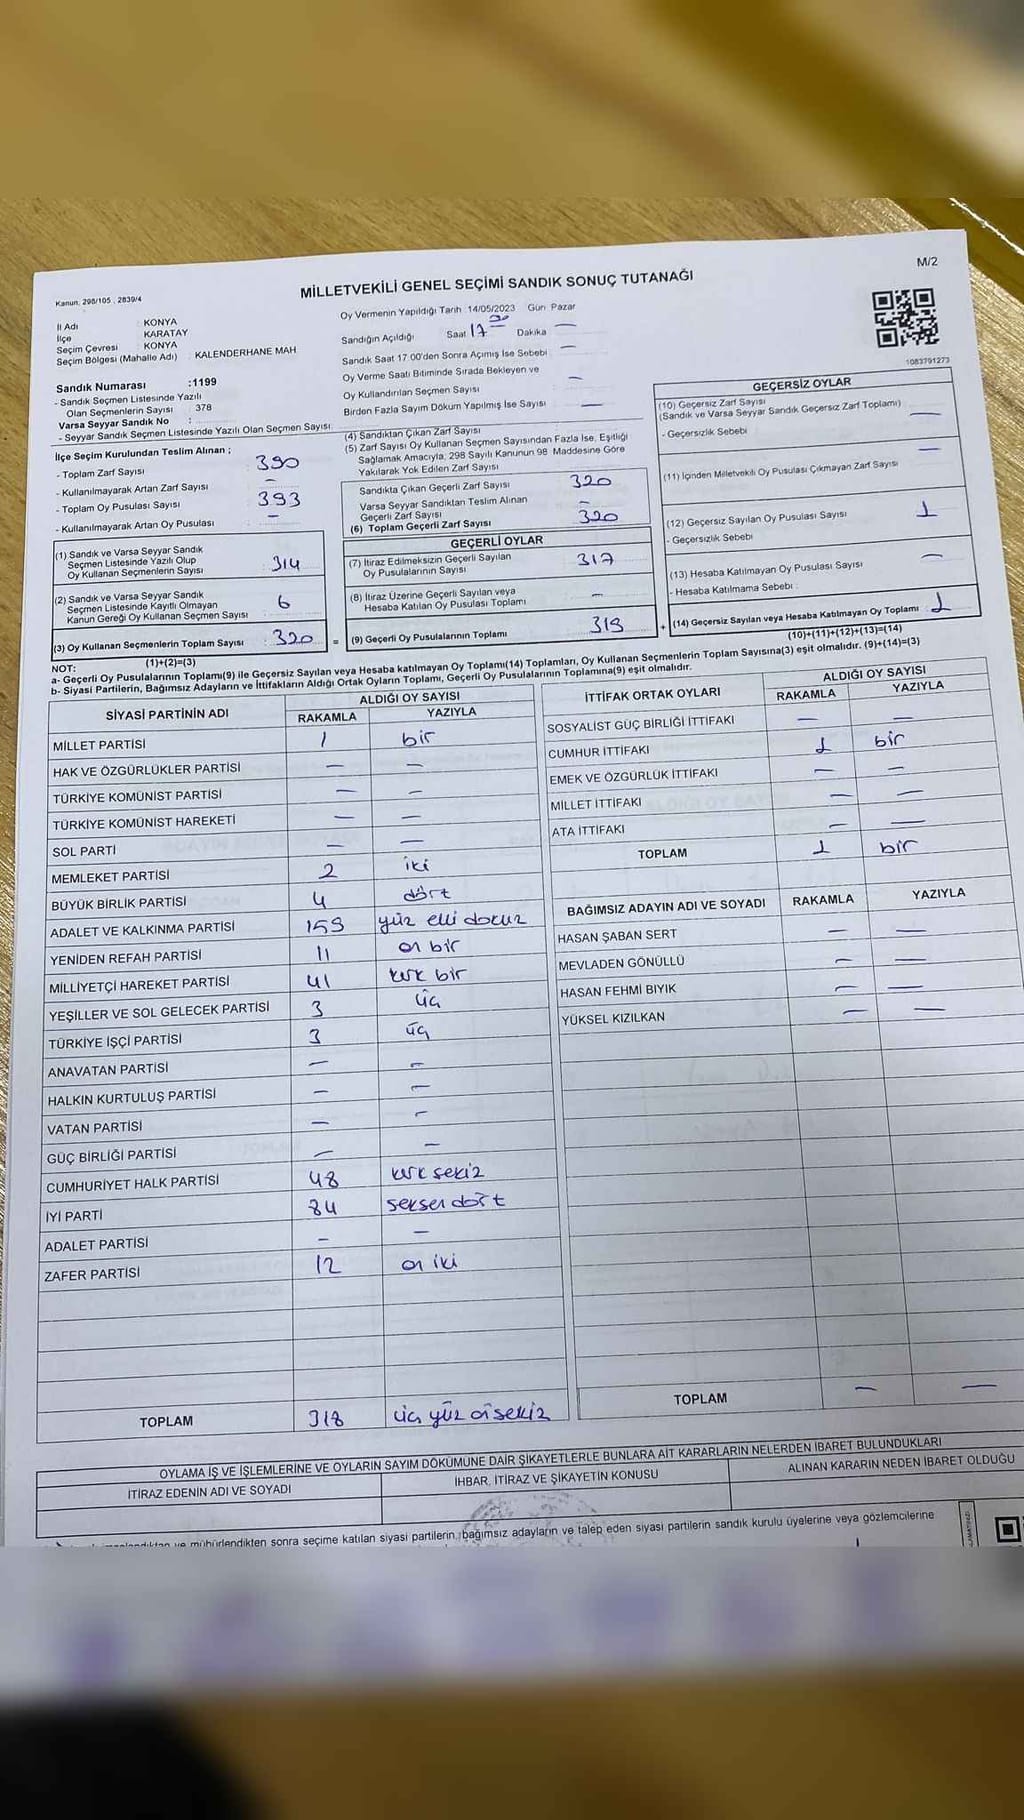 M/2
Kanun: 298/105 , 2839/4
MİLLETVEKİLİ GENEL SEÇİMİ SANDIK SONUÇ TUTANAĞI
İl Adı : KONYA
İlçe : KARATAY
Seçim Çevresi : KONYA
Seçim Bölgesi (Mahalle Adı) : KALENDERHANE MAH
Sandık Numarası :1199
- Sandık Seçmen Listesinde Yazılı
Olan Seçmenlerin Sayısı : 378
Varsa Seyyar Sandık No :
- Seyyar Sandık Seçmen Listesinde Yazılı Olan Seçmen Sayısı :
Oy Vermenin Yapıldığı Tarih :14/05/2023 Gün: Pazar
Sandığın Açıldığı Saat 17 00 Dakika —
Sandık Saat 17:00'den Sonra Açımış İse Sebebi —
Oy Verme Saati Bitiminde Sırada Bekleyen ve
Oy Kullandırılan Seçmen Sayısı —
Birden Fazla Sayım Döküm Yapılmış İse Sayısı —
1083791273
İlçe Seçim Kurulundan Teslim Alınan ;
- Toplam Zarf Sayısı : 390
- Kullanılmayarak Artan Zarf Sayısı : —
- Toplam Oy Pusulası Sayısı : 393
- Kullanılmayarak Artan Oy Pusulası : —
(1) Sandık ve Varsa Seyyar Sandık
Seçmen Listesinde Yazılı Olup
Oy Kullanan Seçmenlerin Sayısı : 314
(2) Sandık ve Varsa Seyyar Sandık
Seçmen Listesinde Kayıtlı Olmayan
Kanun Gereği Oy Kullanan Seçmen Sayısı : 6
(3) Oy Kullanan Seçmenlerin Toplam Sayısı : 320 =
(1)+(2)=(3)
(4) Sandıktan Çıkan Zarf Sayısı
(5) Zarf Sayısı Oy Kullanan Seçmen Sayısından Fazla İse, Eşitliği
Sağlamak Amacıyla, 298 Sayılı Kanunun 98. Maddesine Göre
Yakılarak Yok Edilen Zarf Sayısı
Sandıkta Çıkan Geçerli Zarf Sayısı 320
Varsa Seyyar Sandıktan Teslim Alınan
Geçerli Zarf Sayısı —
(6) Toplam Geçerli Zarf Sayısı 320
GEÇERLİ OYLAR
(7) İtiraz Edilmeksizin Geçerli Sayılan
Oy Pusulalarının Sayısı 317
(8) İtiraz Üzerine Geçerli Sayılan veya
Hesaba Katılan Oy Pusulası Toplamı —
(9) Geçerli Oy Pusulalarının Toplamı 319 +
GEÇERSİZ OYLAR
(10) Geçersiz Zarf Sayısı
(Sandık ve Varsa Seyyar Sandık Geçersiz Zarf Toplamı) —
- Geçersizlik Sebebi
(11) İçinden Milletvekili Oy Pusulası Çıkmayan Zarf Sayısı —
(12) Geçersiz Sayılan Oy Pusulası Sayısı 1
- Geçersizlik Sebebi
(13) Hesaba Katılmayan Oy Pusulası Sayısı —
- Hesaba Katılmama Sebebi :
(14) Geçersiz Sayılan veya Hesaba Katılmayan Oy Toplamı 1
(10)+(11)+(12)+(13)=(14)
NOT:
a- Geçerli Oy Pusulalarının Toplamı(9) ile Geçersiz Sayılan veya Hesaba katılmayan Oy Toplamı(14) Toplamları, Oy Kullanan Seçmenlerin Toplam Sayısına(3) eşit olmalıdır. (9)+(14)=(3)
b- Siyasi Partilerin, Bağımsız Adayların ve İttifakların Aldığı Ortak Oyların Toplamı, Geçerli Oy Pusulalarının Toplamına(9) eşit olmalıdır.
SİYASİ PARTİNİN ADI ALDIĞI OY SAYISI
RAKAMLA YAZIYLA
MİLLET PARTİSİ 1 bir
HAK VE ÖZGÜRLÜKLER PARTİSİ — —
TÜRKİYE KOMÜNİST PARTİSİ — —
TÜRKİYE KOMÜNİST HAREKETİ — —
SOL PARTİ — —
MEMLEKET PARTİSİ 2 iki
BÜYÜK BİRLİK PARTİSİ 4 dört
ADALET VE KALKINMA PARTİSİ 159 yüz elli dokuz
YENİDEN REFAH PARTİSİ 11 on bir
MİLLİYETÇİ HAREKET PARTİSİ 41 kırk bir
YEŞİLLER VE SOL GELECEK PARTİSİ 3 üç
TÜRKİYE İŞÇİ PARTİSİ 3 üç
ANAVATAN PARTİSİ — —
HALKIN KURTULUŞ PARTİSİ — —
VATAN PARTİSİ — —
GÜÇ BİRLİĞİ PARTİSİ — —
CUMHURİYET HALK PARTİSİ 48 kırk sekiz
İYİ PARTİ 34 seksen dört
ADALET PARTİSİ — —
ZAFER PARTİSİ 12 on iki
TOPLAM 318 üç yüz on sekiz
İTTİFAK ORTAK OYLARI ALDIĞI OY SAYISI
RAKAMLA YAZIYLA
SOSYALİST GÜÇ BİRLİĞİ İTTİFAKI — —
CUMHUR İTTİFAKI 1 bir
EMEK VE ÖZGÜRLÜK İTTİFAKI — —
MİLLET İTTİFAKI — —
ATA İTTİFAKI — —
TOPLAM 1 bir
BAĞIMSIZ ADAYIN ADI VE SOYADI RAKAMLA YAZIYLA
HASAN ŞABAN SERT — —
MEVLADEN GÖNÜLLÜ — —
HASAN FEHMİ BIYIK — —
YÜKSEL KIZILKAN — —
TOPLAM — —
OYLAMA İŞ VE İŞLEMLERİNE VE OYLARIN SAYIM DÖKÜMÜNE DAİR ŞİKAYETLERLE BUNLARA AİT KARARLARIN NELERDEN İBARET BULUNDUKLARI
İTİRAZ EDENİN ADI VE SOYADI İHBAR, İTİRAZ VE ŞİKAYETİN KONUSU ALINAN KARARIN NEDEN İBARET OLDUĞU
ve mühürlendikten sonra seçime katılan siyasi partilerin, bağımsız adayların ve talep eden siyasi partilerin sandık kurulu üyelerine veya gözlemcilerine